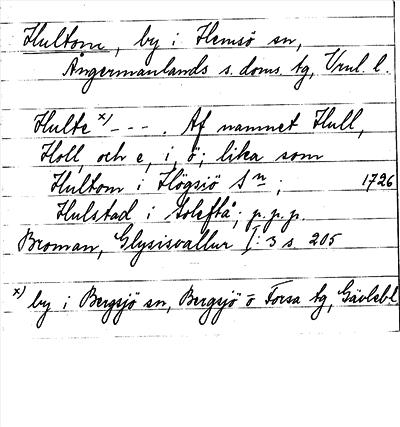 Hultom, by i Hemsö sn,
Ångermanlands s. doms. tg, Vnl. l.
Hulte x) - - - . Af namnet Hull,
Holl, och e, i, ö; lika som
Hultom i Högsiö Sn; 1726
Hulstad i Solefftå; p.p.p.
Broman, Glysisvallur I: 3 s. 205
x) by i Bergsjö sn, Bergsjö o Forsa tg, Gävlebl.